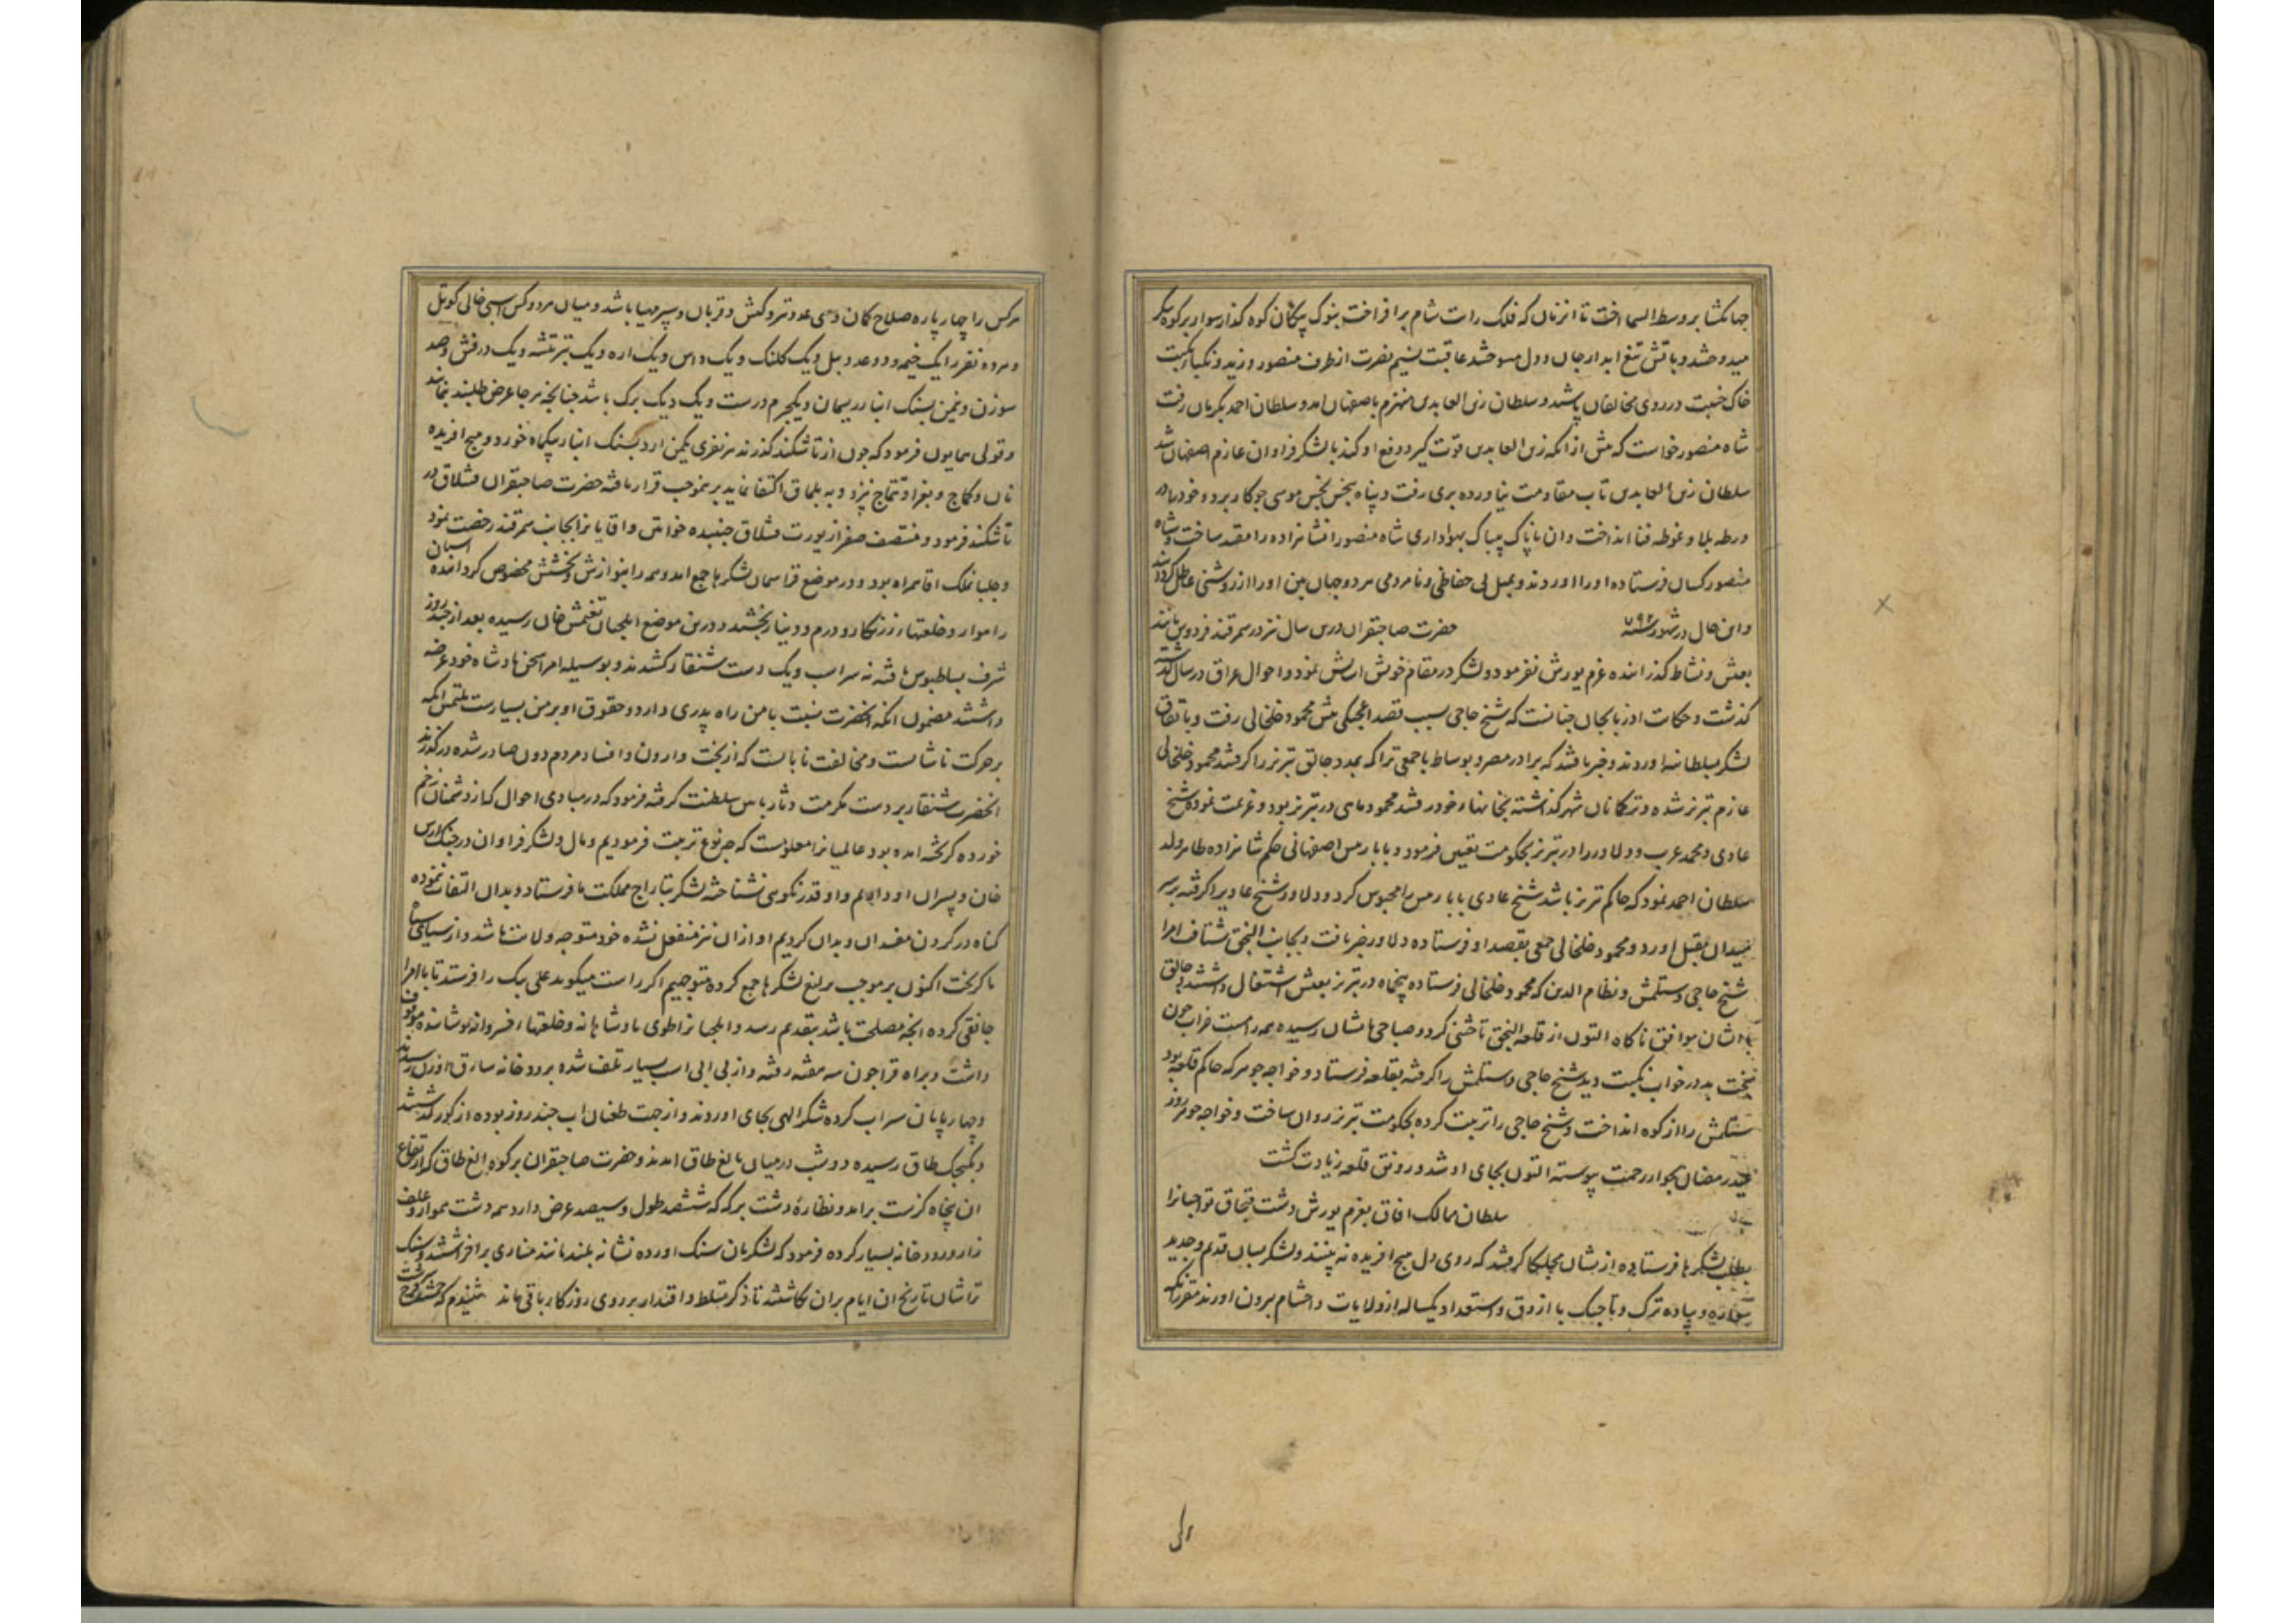 جهانکشا بر وسط السما افت تا انزمان که فلک رات شام برافراخت بنوک پیکان کوه کذار سوار بر کوه پیکر
میدوختند و باتش تیغ ابدار جان و دل میسوختند عاقبت نسیم نصرت از طرف منصور وزید و نکبا نکبت
خاک خیبت در روی مخالفان پاشید و سلطان زین العابدین منهزم باصفهان امد و سلطان احمد بکرمان رفت
شاه منصور خواست که پیش از انکه زین العابدین قوت کیرد دفع او کند با لشکر فراوان عازم اصفهان شد
سلطان زین العابدین تاب مقاومت نیاورده بری رفت و پناه بخس نجس موسی جوکار برد و خود را در
ورطه بلا و غوطه فنا انداخت و ان ناپاک بیباک بهواداری شاه منصور انشانزاده را مقید ساخت و شاه
منصور کسان فرستاده او را اوردند و بمیل بی حفاظی و نامردمی مردو جهان بین او را از روشنی عاطل کرداند
و این حال در شهور سنه ۷۹۲ حضرت صاحبقران درین سال نیز در سمرقند فردوس مانند
بعیش و نشاط کذرانیده عزم یورش نفرمود و لشکر در مقام خویش اسایش نمود و احوال عراق در سال کذشته
کذشت و حکایات اذربایجان چنانست که شیخ حاجی بسبب قصد انجکی پیش محمود خلخالی رفت و باتفاق
لشکر بسلطانیه اوردند و خبر یافتند که برادر مصر و بوساط با جمعی تراکمه بمدد جالق تبریز را کرفتند محمود خلخالی
عازم تبریز شده و ترکمانان شهر کذاشته بخانهاء خود رفتند محمود ماهی در تبریز بود و عزیمت نموده شیخ
عادی و محمد عرب و دلاور را در تبریز بحکومت تعیین فرمود و بابا رمس اصفهانی حکم شاهزاده طاهر ولد
سلطان احمد نمود که حاکم تبریز باشد شیخ عادی بابا رمس را محبوس کرد و دلاور شیخ عادی را کرفته بر سر
میدان بقتل اورد و محمود خلخالی جمعی بقصد او فرستاده دلاور خبر یافت و بجانب النجق شتافت امرا
شیخ حاجی و ستلمش و نظام الدین که محمود خلخالی فرستاده پنجاه در تبریز بعیش اشتغال داشتند و جالق
با ایشان موافق ناکاه التون از قلعه النجق تاختنی کرد و صباحی بایشان رسیده همه را مست خراب چون
بخت بد در خواب نکبت دید شیخ حاجی و ستلمش را کرفته بقلعه فرستاد و خواجه جوهر که حاکم قلعه بود
ستلمش را از کوه انداخت و شیخ حاجی را تربیت کرده بحکومت تبریز روان ساخت و خواجه جوهر روز
عید رمضان بجوار رحمت پیوسته التون بجای او شد و رونق قلعه زیادت کشت
سلطان ممالک افاق بعزم یورش دشت قبجاق تواجیانرا
بطلب لشکرها فرستاده از ایشان مجلکا کرفتند که روی دل هیچ افریده نه بینند و لشکریان قدیم و جدید
سواره و پیاده ترک و تاجیک با ازوق و استعداد یکساله از ولایات و احشام بیرون اورند مقرر انکه
الی
هرکس را چهار پاره صلاح کمان و سی عدد تیر و کیش و قربان و سپر مهیا باشد و میان هر دو کس اسبی خالی کوتل
و هر ده نفر را یک خیمه و دو عدد بیل و یک کلنک و یک داس و یک اره و یک تبر تیشه و یک درفش و صد
سوزن و نیمن بسنک انبار ریسمان و یکجرم درست و یک دیک برک باشد چنانجه هر جا عرض طلبند بنماید
و قولی همایون فرمود که جون از تاشکند کذرند هر نفری یکمن ارد بسنک انبار بیکماه خورد و هیچ افریده
نان و کماج و بغرا و تتماج نپزد و به بلماق اکتفا نماید برینموجب قرار یافته حضرت صاحبقران قشلاق در
تاشکند فرمود و منتصف صفر از یورت قشلاق جنبیده خواتین و اقایانرا بجانب سمرقند رخصت نمود
و جلبا ملک اقا همراه بود و در موضع قرا سمان لشکرها جمع امد و همه را بنوازش و بخشش مخصوص کردانیده اسپان
راهوار و خلعتهاء زرنکار و درم و دینار بخشید و درین موضع ایلچیان تغتمش خان رسیده بعد از چند روز
شرف بساطبوس یافته نه سر اسب و یک دست شنقار کشیدند و بوسیله امرا سخن پادشاه خود عرضه
داشتند مضمون انکه انحضرت نسبت با من راه پدری دارد و حقوق او بر من بسیارست ملتمس انکه
بر حرکت ناشایست و مخالفت نابایست که از بخت وارون و افساد مردم دون صادر شده در کذرند
انحضرت شنقار بر دست مکرمت و نثار باس سلطنت کرفته فرمود که در مبادی احوال که از دشمنان زخم
خورده کریخته امده بود عالمیانرا معلومست که چه نوع تربیت فرمودیم و مال و لشکر فراوان در جنک ارس
خان و پسران او دادیم و او قدر نکویی نشناخته لشکر بتاراج مملکت ما فرستاد و بدان التفات ننموده
کناه در کردن مفسدان و بدان کردیم او از ان نیز منفعل نشده خود متوجه ولایت ما شد و از سیاهی سپاه
ما کریخت اکنون بر موجب یرلیغ لشکرها جمع کرده متوجهیم اکر راست میکوید علی بیک را فرستد تا با امرا
جانقی کرده انچه مصلحت باشد بتقدیم رسد و ایلچیانرا طوی پادشاهانه و خلعتهاء خسروانه پوشانیده موقوف
داشت و براه قراجون سه هفته رفته و از بی ابی اسب بسیار تلف شده برودخانه سارق اوزن رسیدند
و چهارپایان سیراب کرده شکر الهی بجای اوردند و از جهت طغیان اب چند روز بوده از کورکه شدند
و بکیجک طاق رسیده دو شب در میان بالغ طاق امدند و حضرت صاحبقران بر کوه الغ طاق که ارتفاع
ان پنجاه کزست برامد و نظاره دشت بر که که ششصد طول و سیصد عرض دارد همه دشت هموار و علف
زار و رودخانه بسیار کرده فرمود که لشکریان سنک اورده نشانه بلند مانند مناری برافراشتند و سنک
تراشان تاریخ ان ایام بران نکاشتند تا ذکر تسلط و اقتدار بر روی روزکار باقی ماند شنیدم که جمشید فرخ سرشت